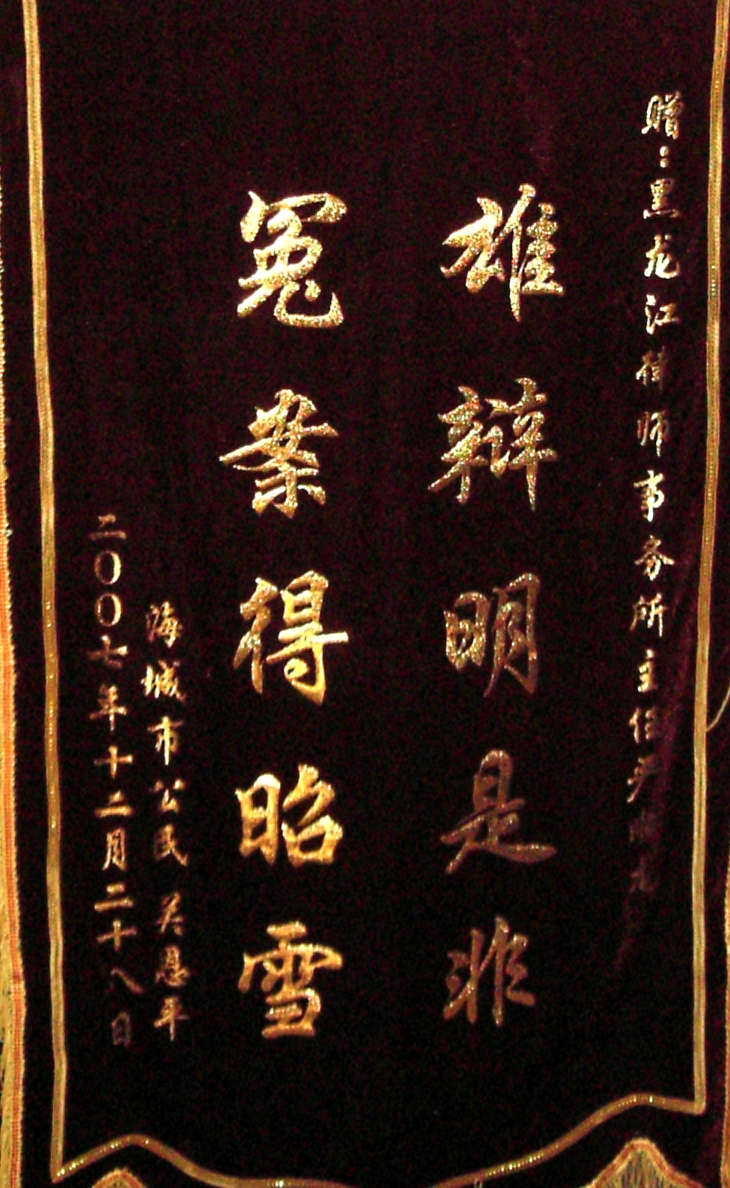 赠:黑龙江律师事务所主任严
雄辩明是非
冤案得昭雪
海城市公民关恩平
二〇〇七年十二月二十八日